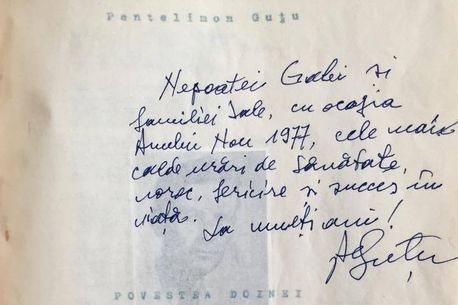 Pentelimon Guțu
Nepoatei Galei și
familiei sale, cu ocazia
Anului Nou 1977, cele mai
calde urări de sănătate,
noroc, fericire și succes în
viață.
La mulți ani!
PGuțu
POVESTEA DOINEI